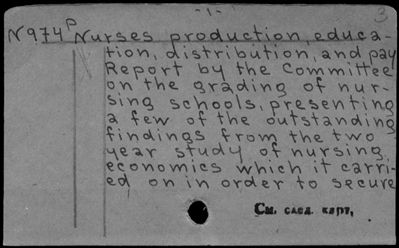 -1-
3
N974P Nurses production, educa-
tion, distribution, and pay
Report by the Committee
on the grading of nur-
sing schools, presenting
a few of the outstanding
findings from the two
year study of nursing
economics which it carri-
ed on in order to secure
См. след. карт.